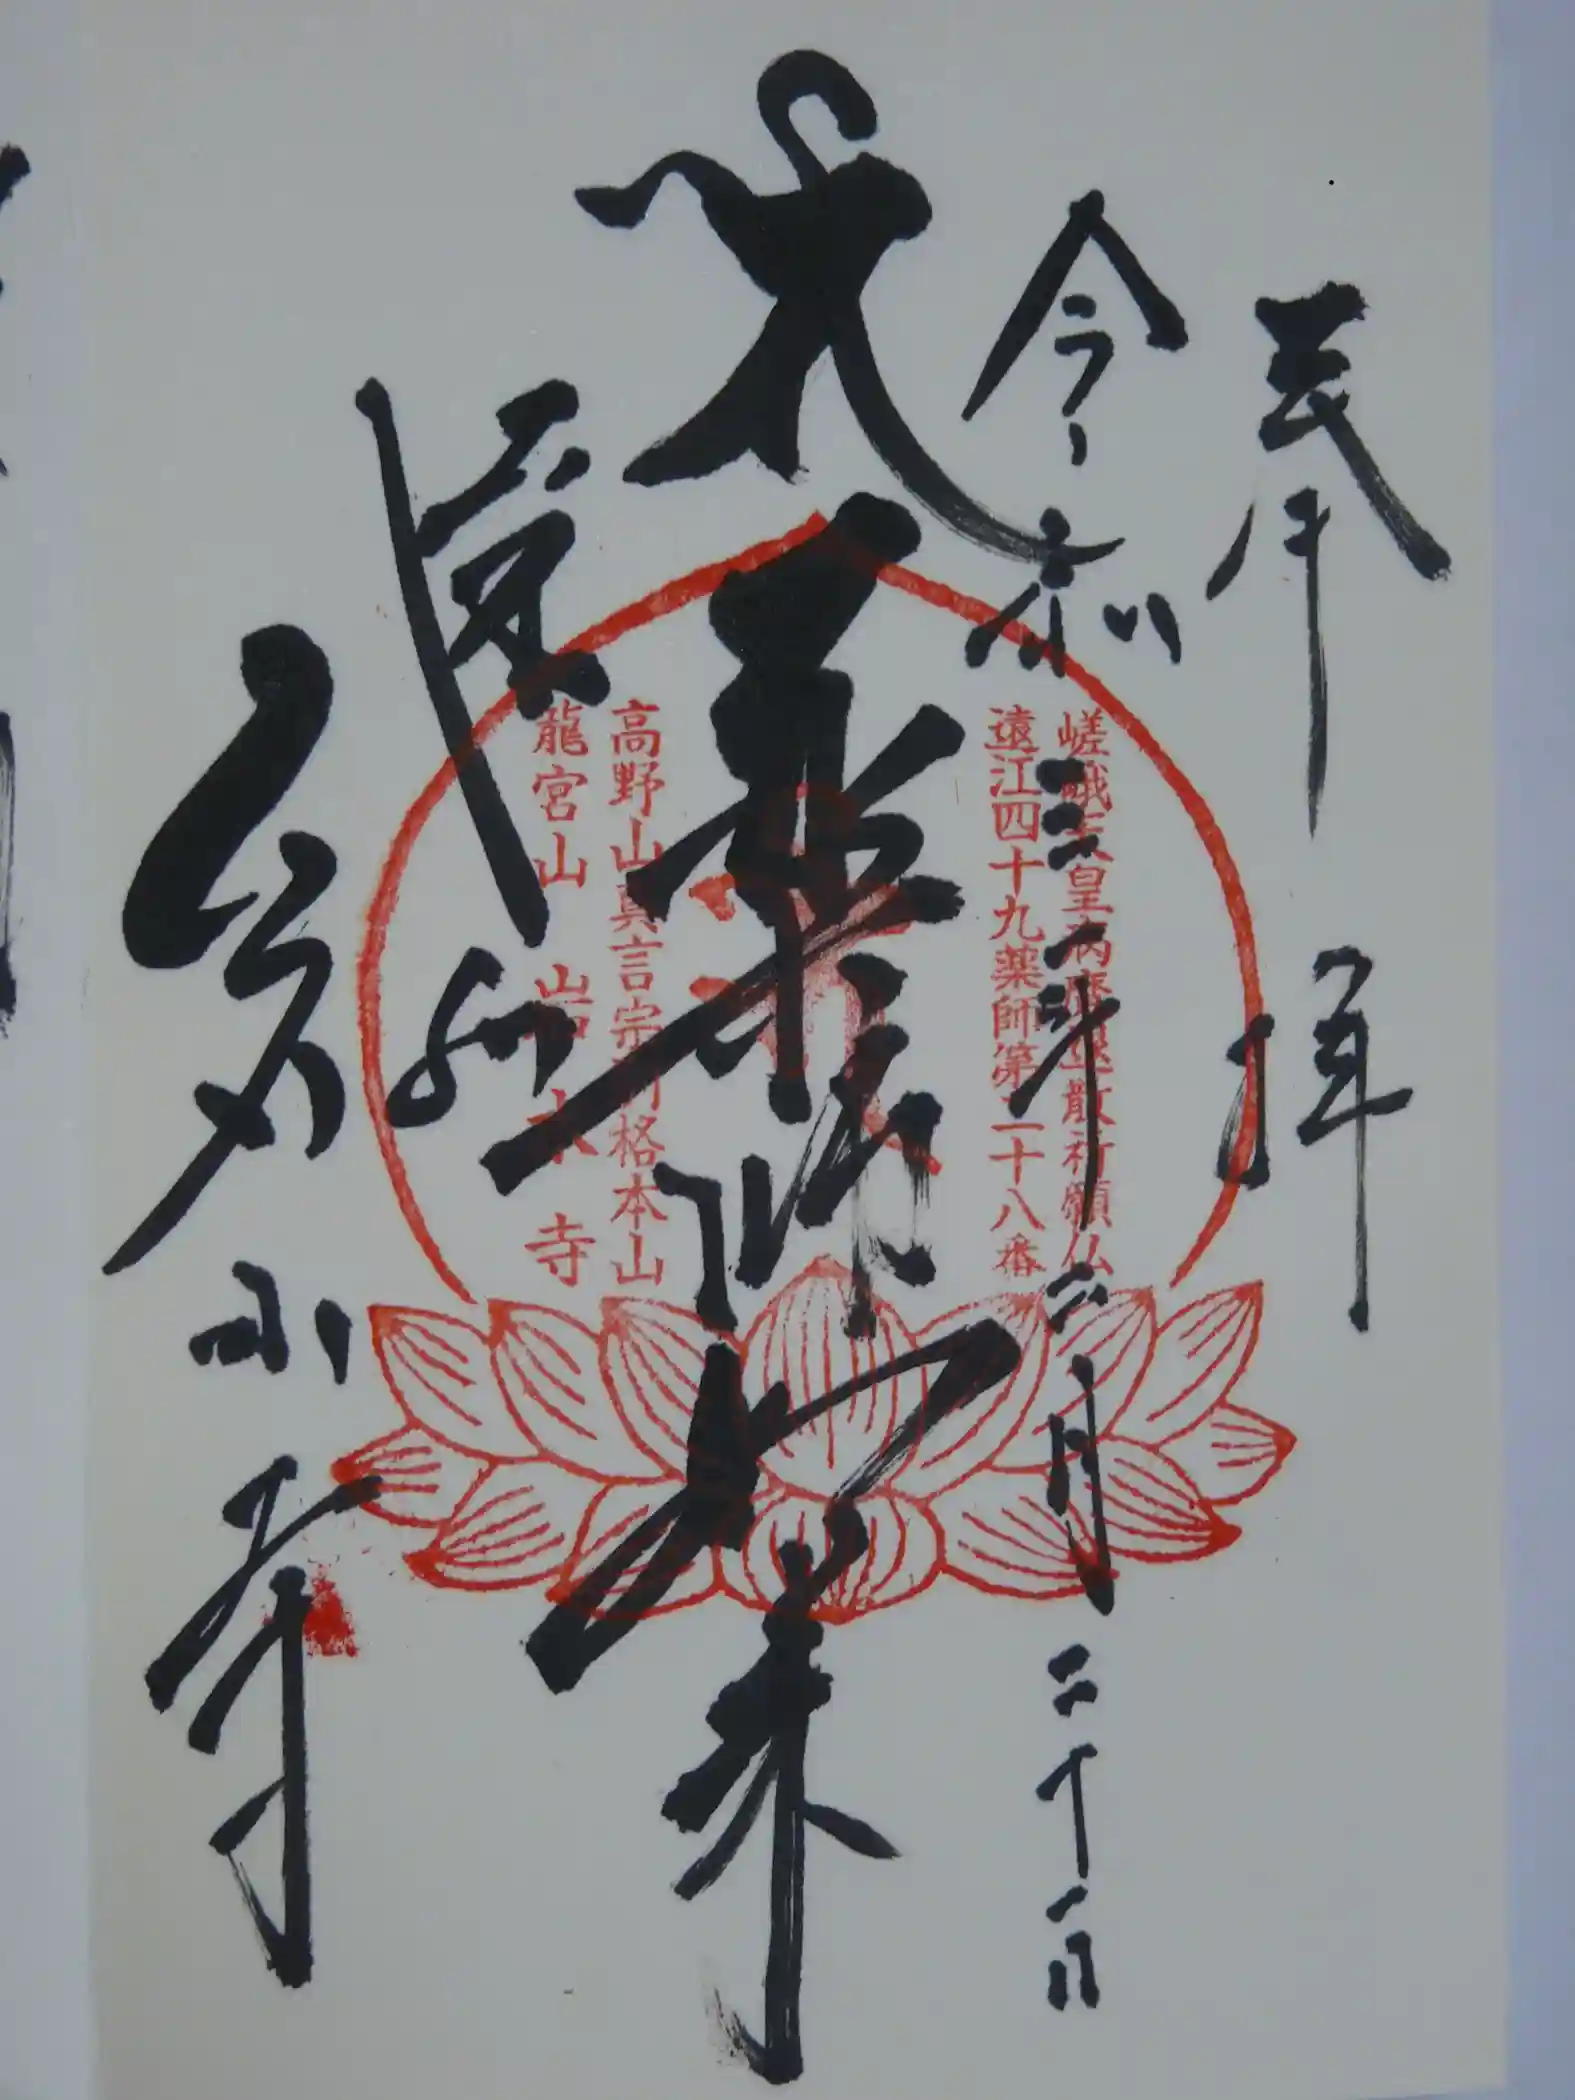 奉拝
令和三年二月二十一日
嵯峨天皇病魔退散祈願仏
遠江四十九薬師第二十八番
薬師如来
高野山真言宗別格本山
龍宮山 岩水寺
遠州
岩水寺